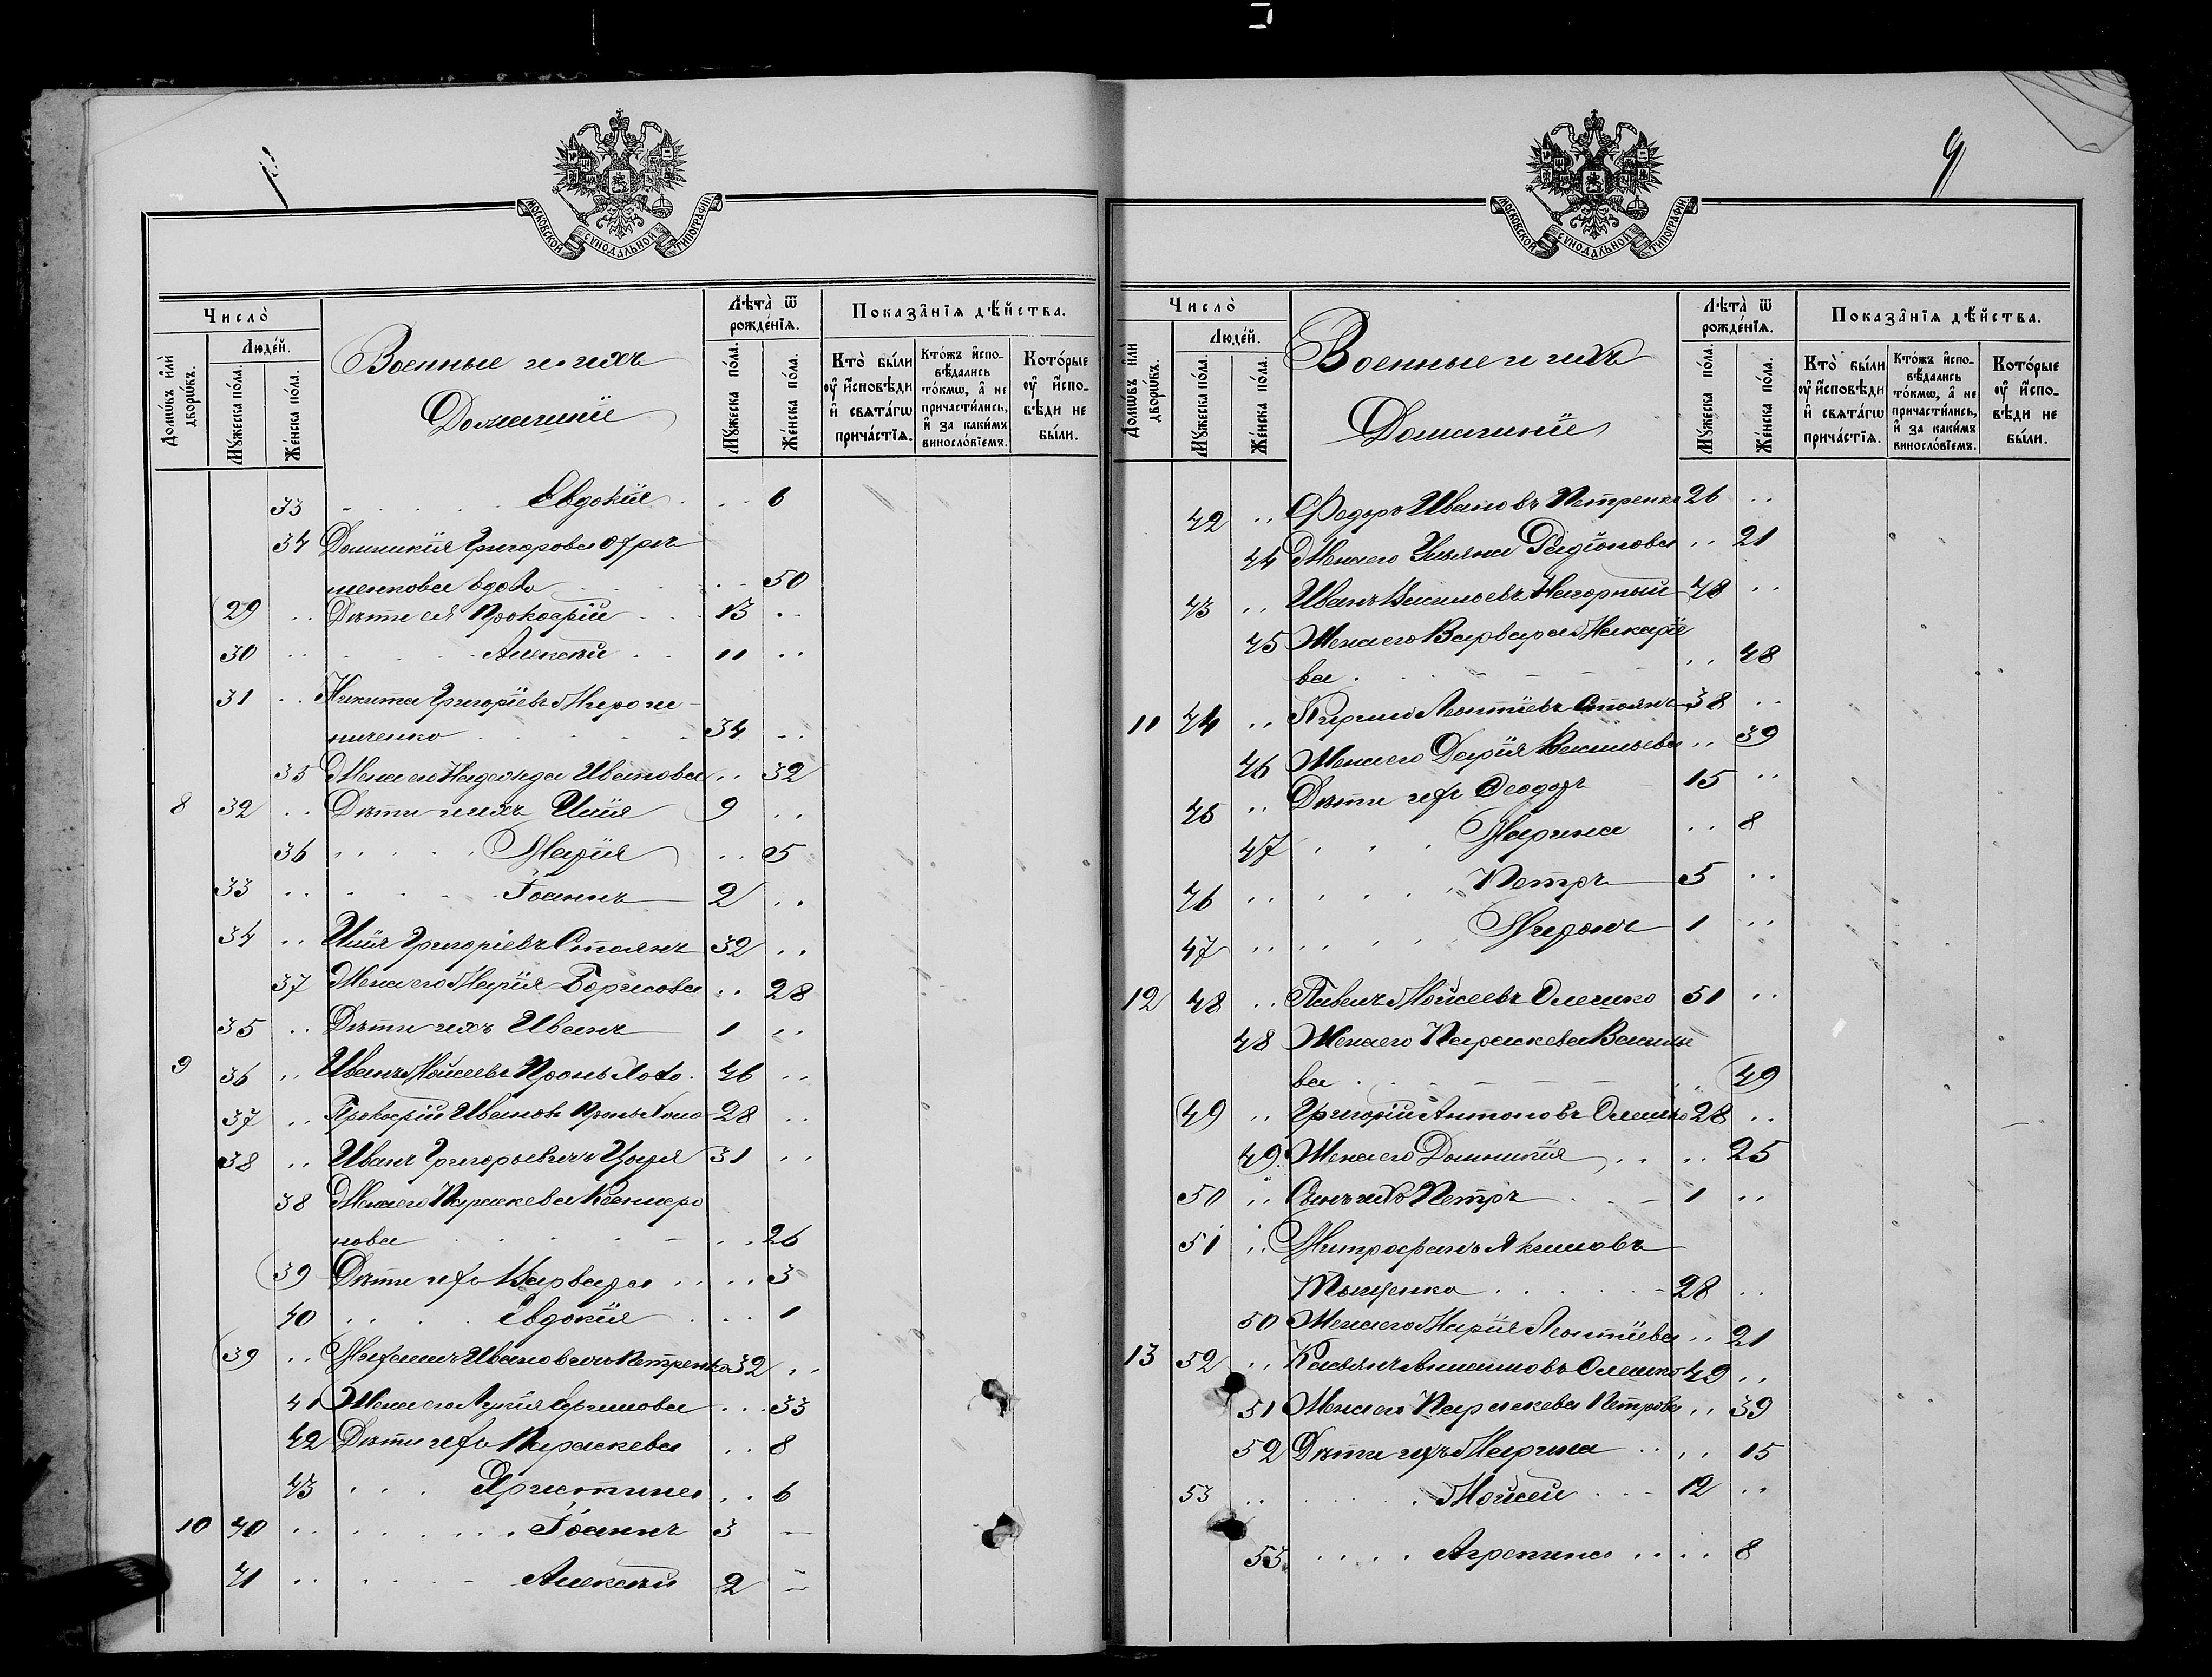 МОСКОВСКОЙ СѴНОДАЛЬНОЙ ТИПОГРАФІИ
Число̀
Домѡ́въ и҆лѝ дворѡ́въ.
Люде́й.
Мꙋ́жеска по́ла.
Же́нска по́ла.
Военные и ихъ
Домашніе
Лѣта̀ ѿ рожде́нїѧ.
Мꙋ́жеска по́ла.
Же́нска по́ла.
Показа̂нїѧ дѣ́йства.
Кто̀ бы́ли ᲂу҆ и҆сповѣ́ди и҆ свѧта́гѡ прича́стїѧ.
Кто́жъ и҆спо-вѣ́дались то́кмѡ, а҆ не причасти́лись, и҆ за каки́мъ виносло́вїемъ.
Кото́рые ᲂу҆ и҆спо-вѣ́ди не бы́ли.
33 Евдокія 6
34 Домникія Григорова
шенкова вдова 50
29 Дѣти ея Прокофій 13
30 Алексѣй 11
31 Никита Григоріевъ Мирош
ниченко 34
35 Жена его Надежда Иванова 32
8 32 Дѣти ихъ Илія 9
36 Марія 5
33 Іоаннъ 2
34 Илія Григоріевъ Стоянъ 32
37 Жена его Марія Борисова 28
35 Дѣти ихъ Иванъ 1
9 36 Иванъ Мойсеевъ 46
37 Прокофій Ивановъ 28
38 Иванъ Григорьевичъ 31
38 Жена его Параскева
нова 26
39 Дѣти ихъ Варвара 3
40 Евдокія 1
39 Михаилъ Ивановичъ Петренко 32
41 Жена его 33
42 Дѣти ихъ Параскева 8
43 Христина 6
10 40 Іоаннъ 3
41 Алексѣй 2
9
МОСКОВСКОЙ СѴНОДАЛЬНОЙ ТИПОГРАФІИ
Число̀
Домѡ́въ и҆лѝ дворѡ́въ.
Люде́й.
Мꙋ́жеска по́ла.
Же́нска по́ла.
Военные и ихъ
Домашніе
Лѣта̀ ѿ рожде́нїѧ.
Мꙋ́жеска по́ла.
Же́нска по́ла.
Показа̂нїѧ дѣ́йства.
Кто̀ бы́ли ᲂу҆ и҆сповѣ́ди и҆ свѧта́гѡ прича́стїѧ.
Кто́жъ и҆спо-вѣ́дались то́кмѡ, а҆ не причасти́лись, и҆ за каки́мъ виносло́вїемъ.
Кото́рые ᲂу҆ и҆спо-вѣ́ди не бы́ли.
42 Федоръ Ивановъ Петренко 26
44 Жена его Ульяна Радіонова 21
43 Иванъ Васильевъ Нагорный 48
45 Жена его Варвара Макаріе
ва 48
11 44 Кирилъ Леонтіевъ Стоянъ 38
46 Жена его Дарія Васильева 39
45 Дѣти ихъ Феодоръ 15
47 Марина 8
46 Петръ 5
47 Миронъ 1
12 48 Павелъ Мойсеевъ Олешко 51
48 Жена его Параскева Василье
ва 49
49 Григорій Антоновъ Олешко 28
49 Жена его Домникія 25
50 Сынъ ихъ Петръ 1
51 Митрофанъ Якимовъ
Тыщенко 28
50 Жена его Марія Леонтіева 21
13 52 Касьянъ Олешко 49
51 Жена его Параскева Петрова 39
52 Дѣти ихъ Марина 15
53 Мойсей 12
53 Агрепина 8